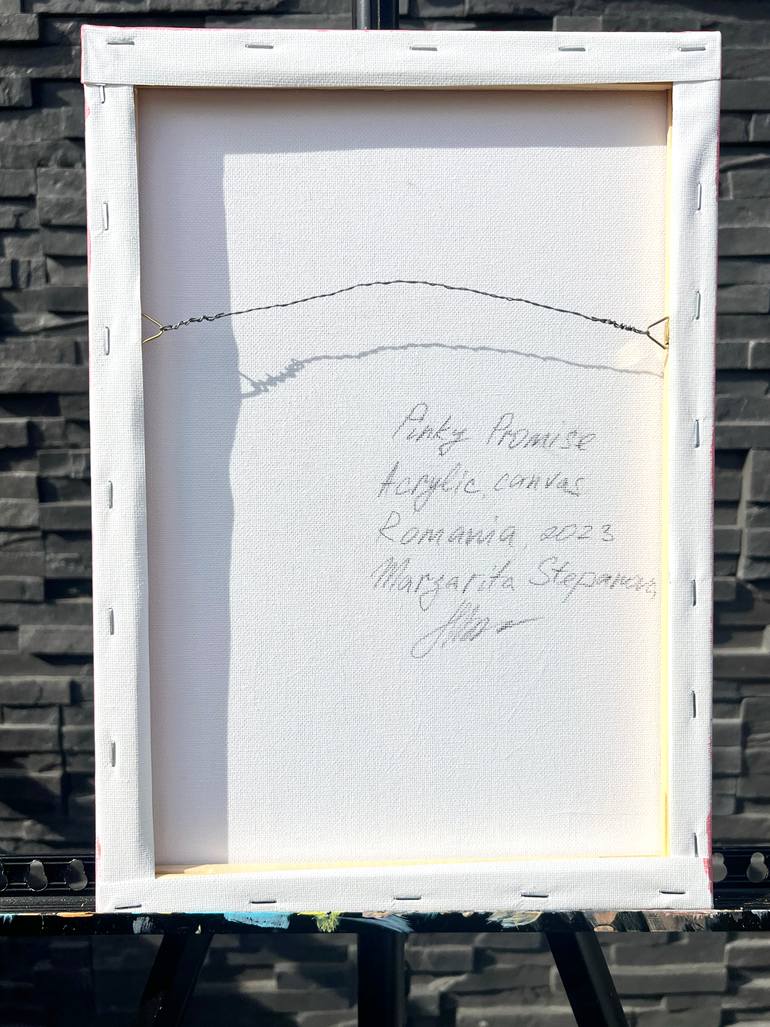 Pinky Promise
Acrylic, canvas
Romania, 2023
Margarita Stepanova